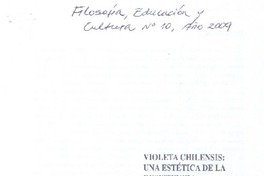 Filosofía, Educación y
Cultura Nº 10, Año 2009
VIOLETA CHILENSIS:
UNA ESTÉTICA DE LA